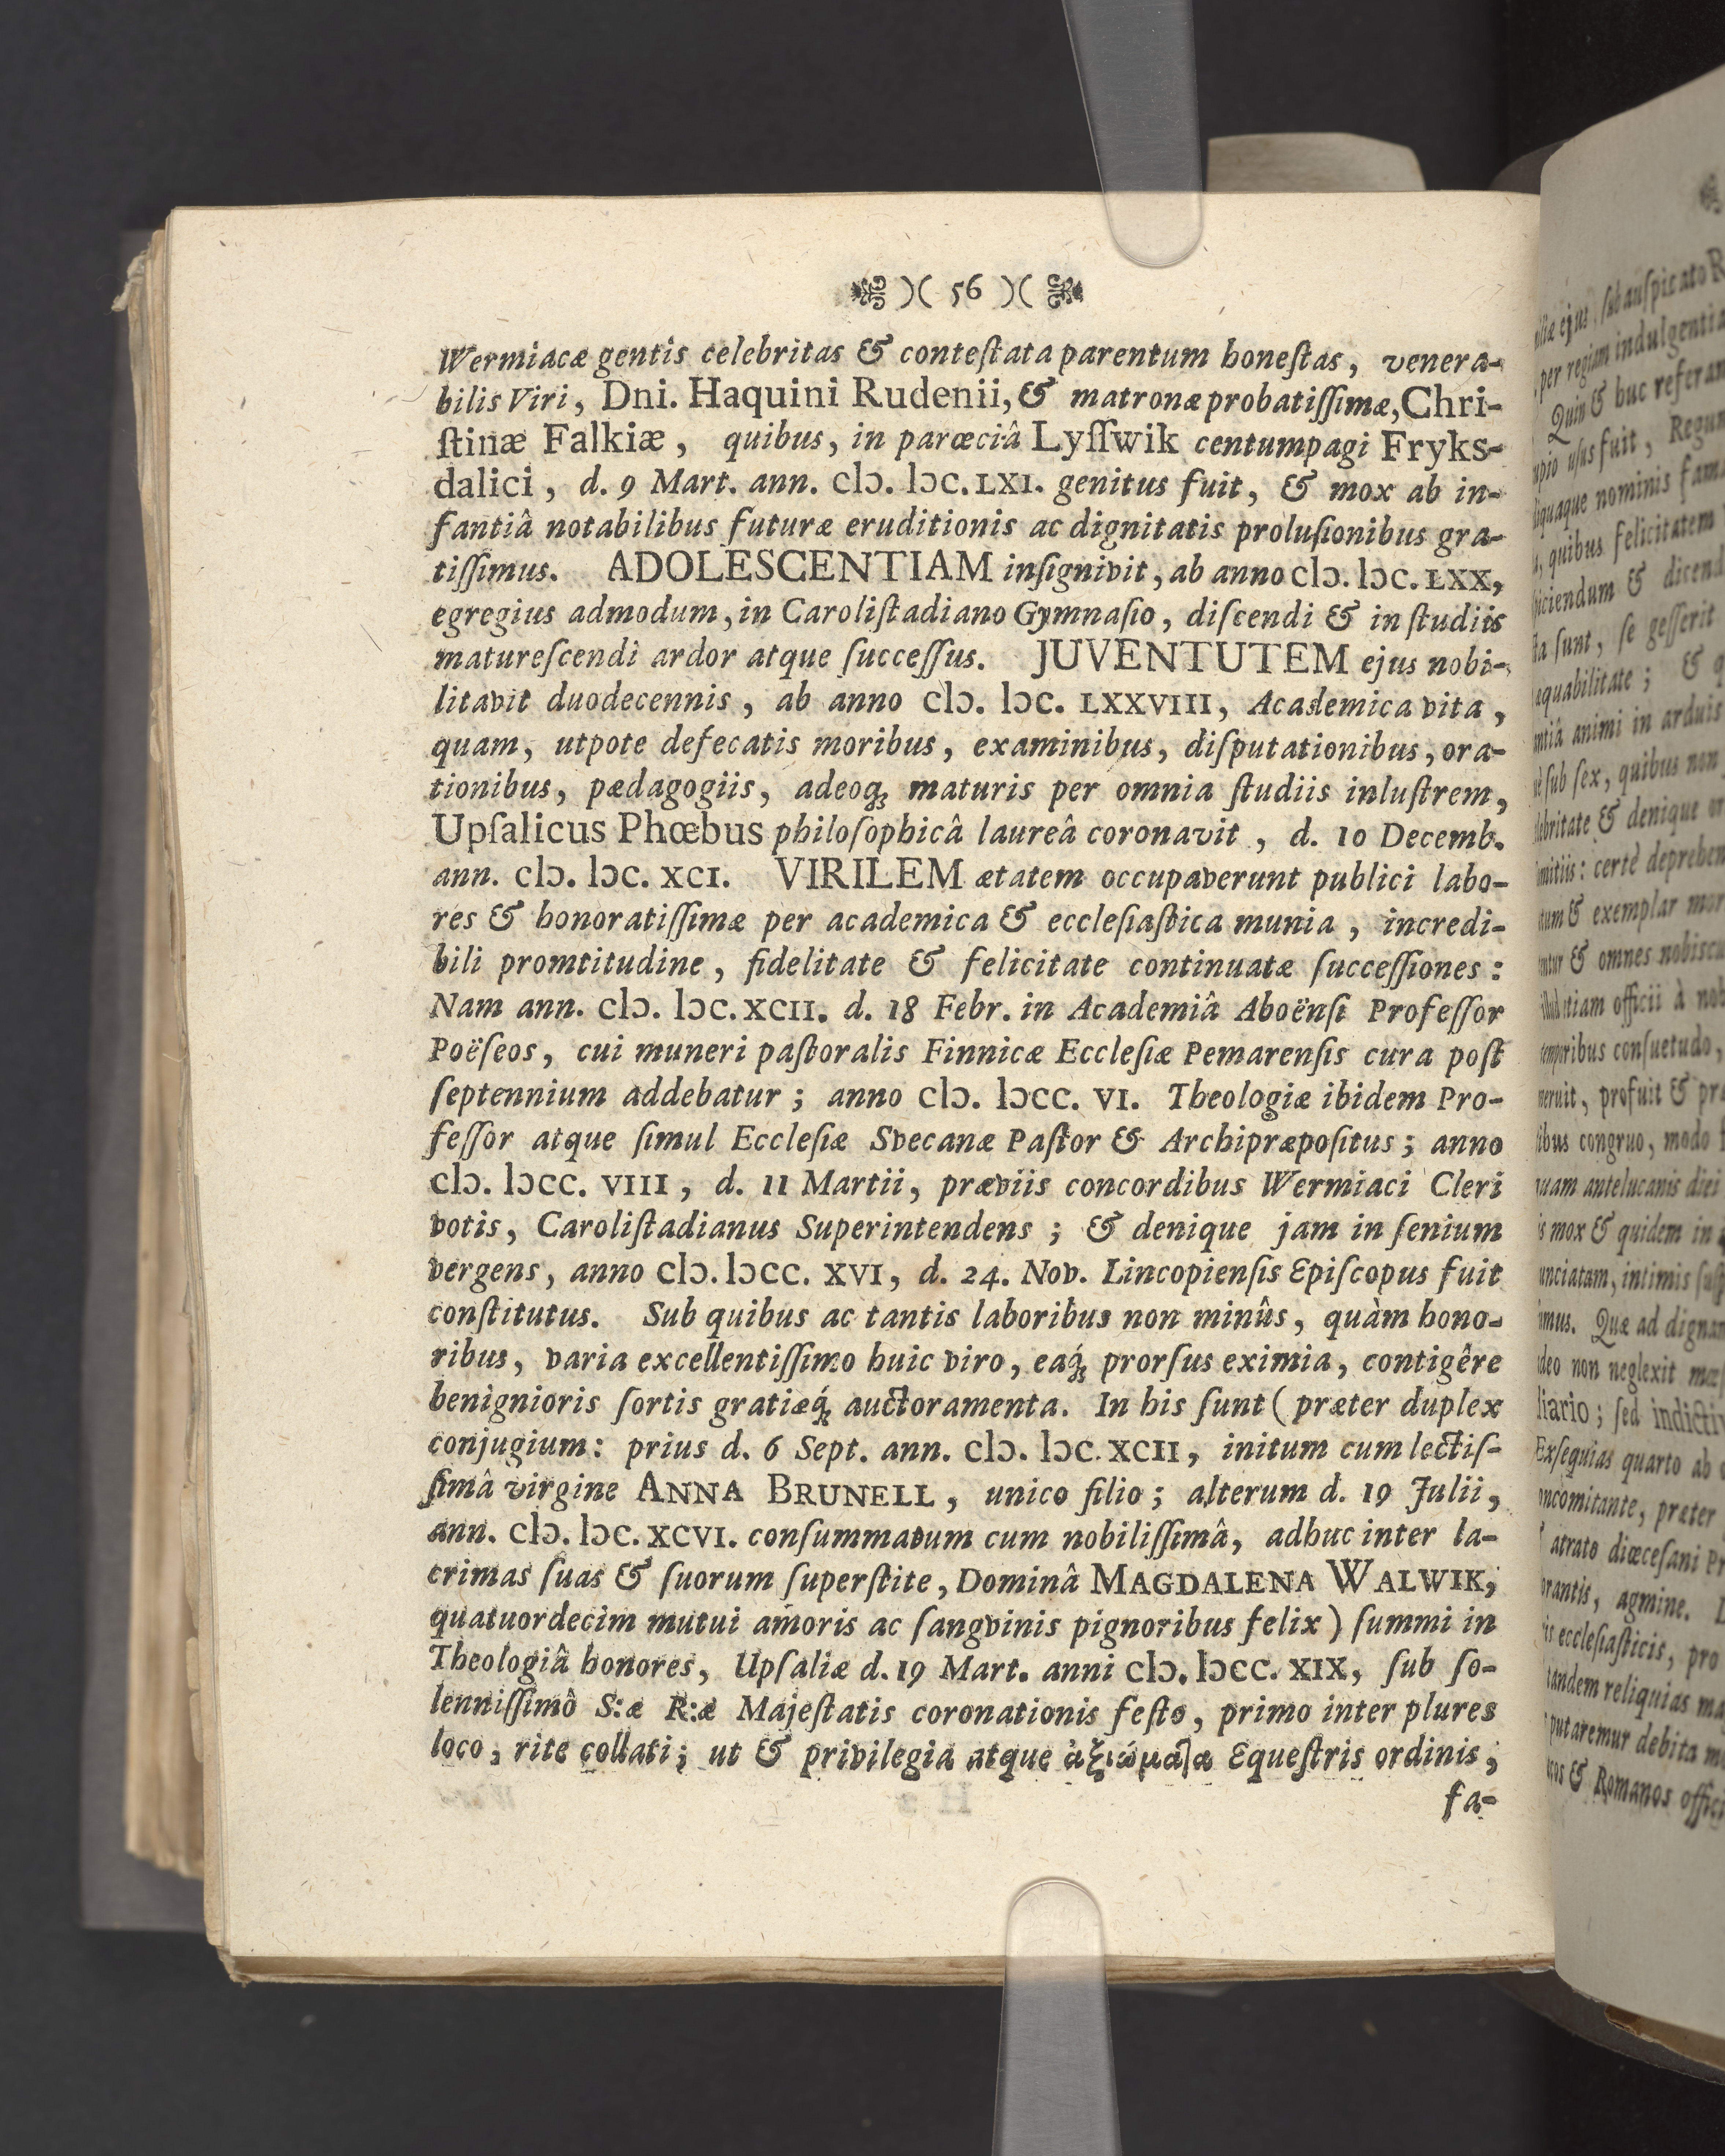 )( 56 )(
Wermiacæ gentis celebritas & conteſtata parentum honeſtas, venera-
bilis Viri, Dni. Haquini Rudenii, & matronæ probatiſſimæ, Chri-
ſtinæ Falkiæ, quibus, in parœciâ Lyſſwik centumpagi Fryks-
dalici, d. 9 Mart. ann. cIↄ. Iↄc. LXI. genitus fuit, & mox ab in-
fantiâ notabilibus futuræ eruditionis ac dignitatis proluſionibus gra-
tiſſimus. ADOLESCENTIAM inſignivit, ab anno cIↄ. Iↄc. LXX,
egregius admodum, in Caroliſtadiano Gymnaſio, diſcendi & in ſtudiis
matureſcendi ardor atque ſucceſſus. JUVENTUTEM ejus nobi-
litavit duodecennis, ab anno cIↄ. Iↄc. LXXVIII, Academica vita,
quam, utpote defecatis moribus, examinibus, diſputationibus, ora-
tionibus, pædagogiis, adeoq; maturis per omnia ſtudiis inluſtrem,
Upſalicus Phœbus philoſophicâ laureâ coronavit, d. 10 Decemb.
ann. cIↄ. Iↄc. XCI. VIRILEM ætatem occupaverunt publici labo-
res & honoratiſſimæ per academica & eccleſiaſtica munia, incredi-
bili promtitudine, fidelitate & felicitate continuatæ ſucceſſiones:
Nam ann. cIↄ. Iↄc. XCII. d. 18 Febr. in Academiâ Aboënſi Profeſſor
Poëſeos, cui muneri paſtoralis Finnicæ Eccleſiæ Pemarenſis cura poſt
ſeptennium addebatur; anno cIↄ. Iↄcc. VI. Theologiæ ibidem Pro-
feſſor atque ſimul Eccleſiæ Svecanæ Paſtor & Archipræpoſitus; anno
cIↄ. Iↄcc. VIII, d. 11 Martii, præviis concordibus Wermiaci Cleri
votis, Caroliſtadianus Superintendens; & denique jam in ſenium
vergens, anno cIↄ. Iↄcc. XVI, d. 24. Nov. Lincopienſis Epiſcopus fuit
conſtitutus. Sub quibus ac tantis laboribus non minûs, quàm hono-
ribus, varia excellentiſſimo huic viro, eaq́; prorſus eximia, contigêre
benignioris ſortis gratiæq́; auctoramenta. In his ſunt (præter duplex
conjugium: prius d. 6 Sept. ann. cIↄ. Iↄc. XCII, initum cum lectiſ-
ſimâ virgine ANNA BRUNELL, unico filio; alterum d. 19 Julii,
ann. cIↄ. Iↄc. XCVI. conſummatum cum nobiliſſimâ, adhuc inter la-
crimas ſuas & ſuorum ſuperſtite, Dominâ MAGDALENA WALWIK,
quatuordecim mutui amoris ac ſangvinis pignoribus felix) ſummi in
Theologiâ honores, Upſaliæ d. 19 Mart. anni cIↄ. Iↄcc. XIX, ſub ſo-
lenniſſimô S:æ R:æ Majeſtatis coronationis feſto, primo inter plures
loco, rite collati; ut & privilegia atque ἀξιώματα Equeſtris ordinis,
fa-